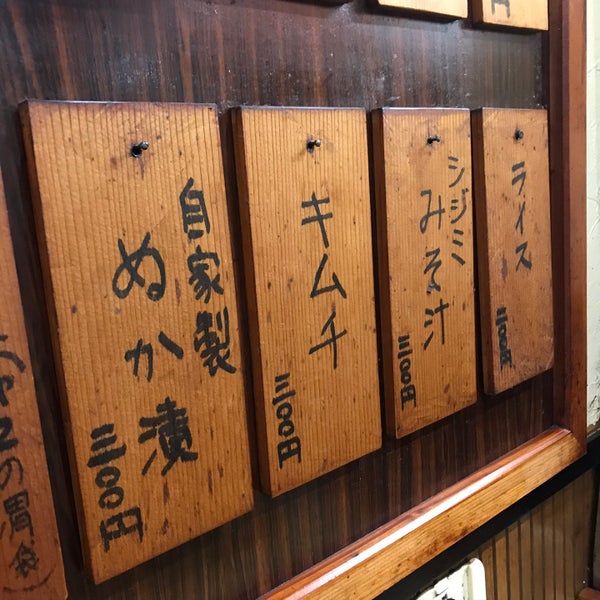 円
ライス
三〇〇円
シジミ
みそ汁
三〇〇円
キムチ
三〇〇円
自家製
ぬか漬
三〇〇円
の胃袋)